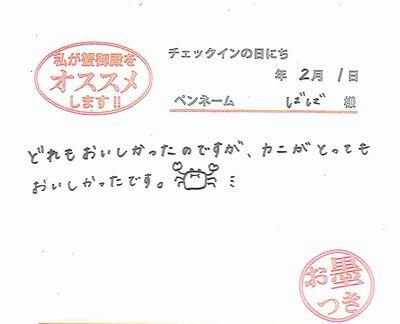 私が蟹御殿を
オススメ
します!!
チェックインの日にち
年 2月 1日
ペンネーム ばば 様
どれもおいしかったのですが、カニがとっても
おいしかったです。
お墨
つき